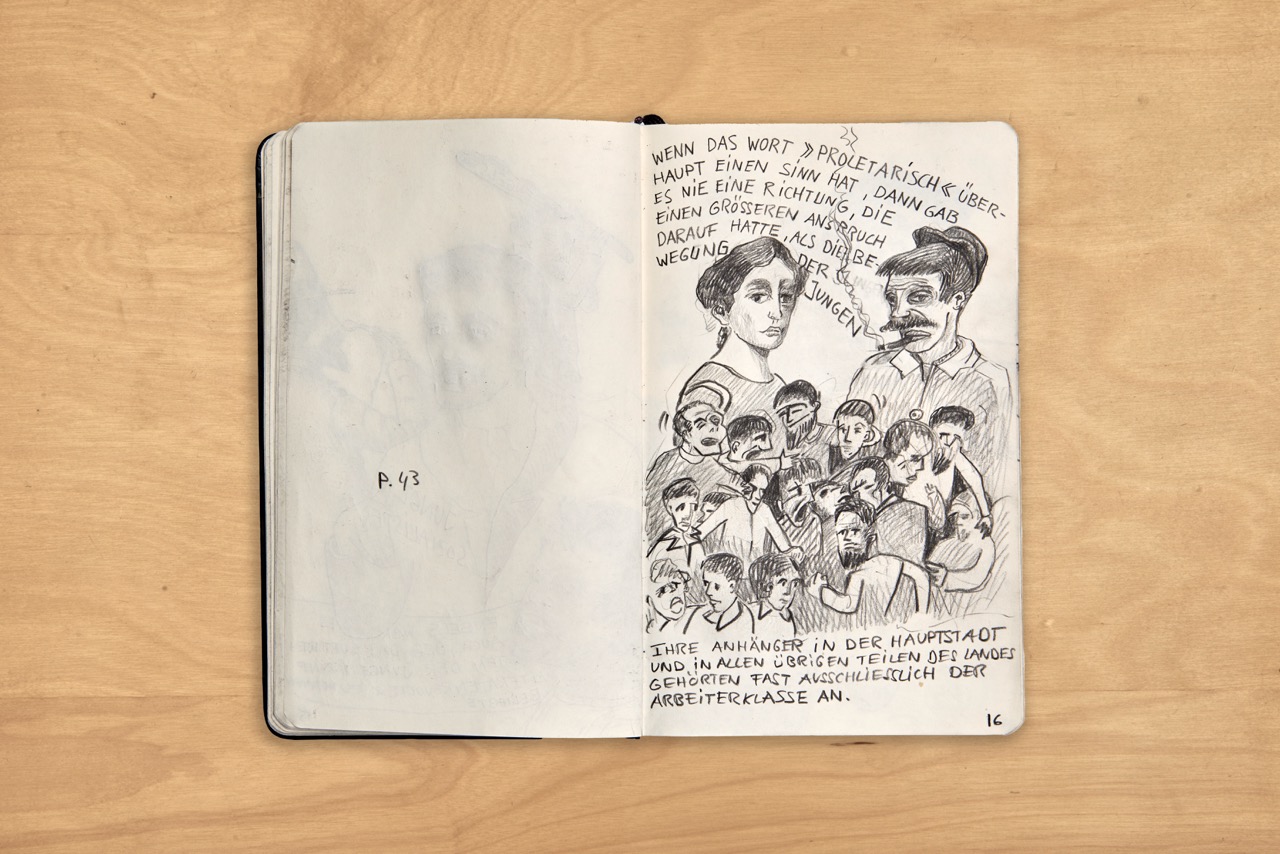 P. 43
WENN DAS WORT »PROLETARISCH« ÜBER-
HAUPT EINEN SINN HAT, DANN GAB
ES NIE EINE RICHTUNG, DIE
EINEN GRÖSSEREN ANSPRUCH
DARAUF HATTE, ALS DIE BE-
WEGUNG DER
JUNGEN
IHRE ANHÄNGER IN DER HAUPTSTADT
UND IN ALLEN ÜBRIGEN TEILEN DES LANDES
GEHÖRTEN FAST AUSSCHLIESSLICH DER
ARBEITERKLASSE AN.
16